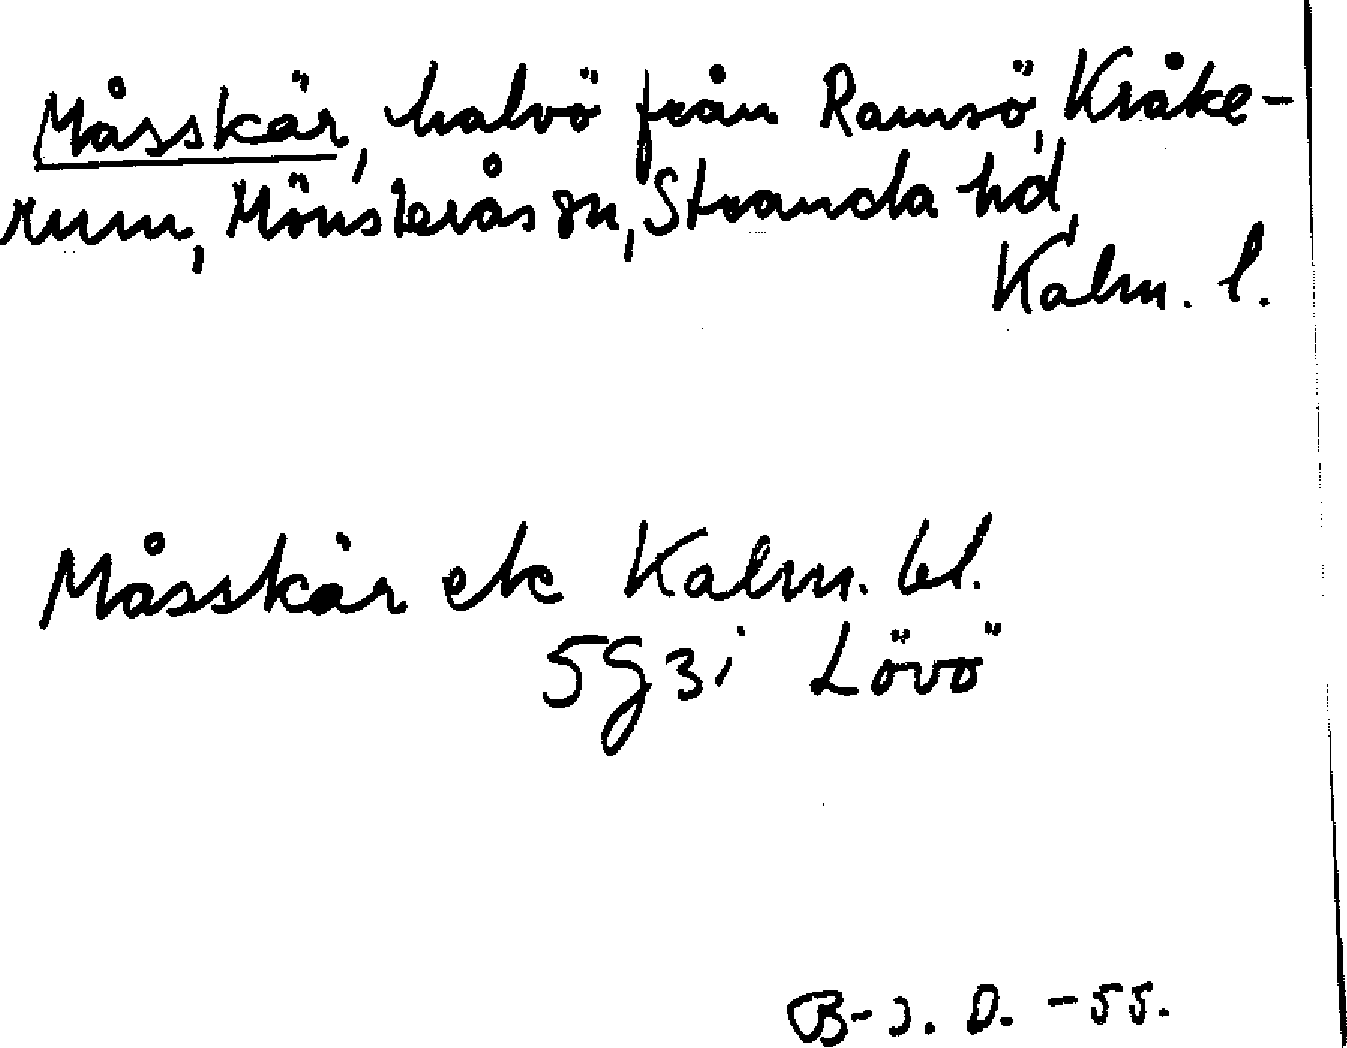 Måsskär, halvö från Ramsö, Kråke-
rum, Mönsterås sn, Stranda hd,
Kalm. l.
Måsskär ek Kalm. bl.
5G3i Lövö
B-J. D. -55.